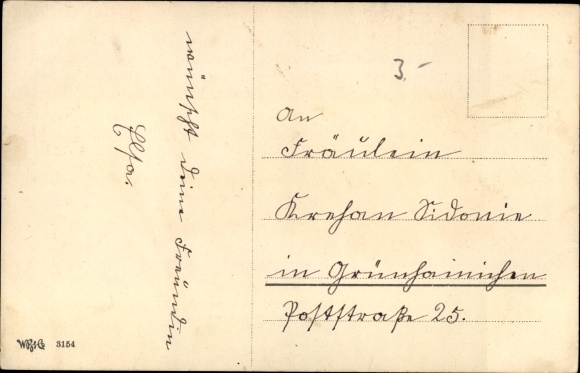 wünscht deine Freundin
Elsa.
3.-
An
Fräulein
Krehan Sidonie
in Grünhainichen
Poststraße 25.
3154